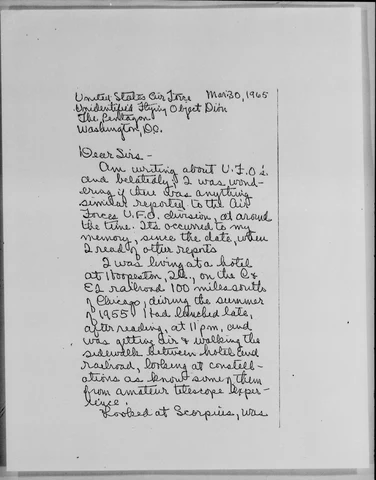 United States Air Force Mar 30, 1965
Unidentified Flying Object Divn
The Pentagon
Washington, D.C.
Dear Sirs -
Am writing about U.F.O's.
and belatedly. I was wond-
ering if there was anything
similar reported to the Air
Forces U.F.O. division, at around
the time. Its occurred to my
memory, since the date, when
I read of other reports
I was living at a hotel
at Hoopeston, Ill., on the C &
EI railroad 100 miles south
of Chicago, during the summer
of 1955 I had lunched late,
after reading, at 11 pm, and
was getting air & walking the
sidewalk between hotel and
railroad, looking at constell-
ations as know some of them
from amateur telescope exper-
ience.
Looked at Scorpius, was